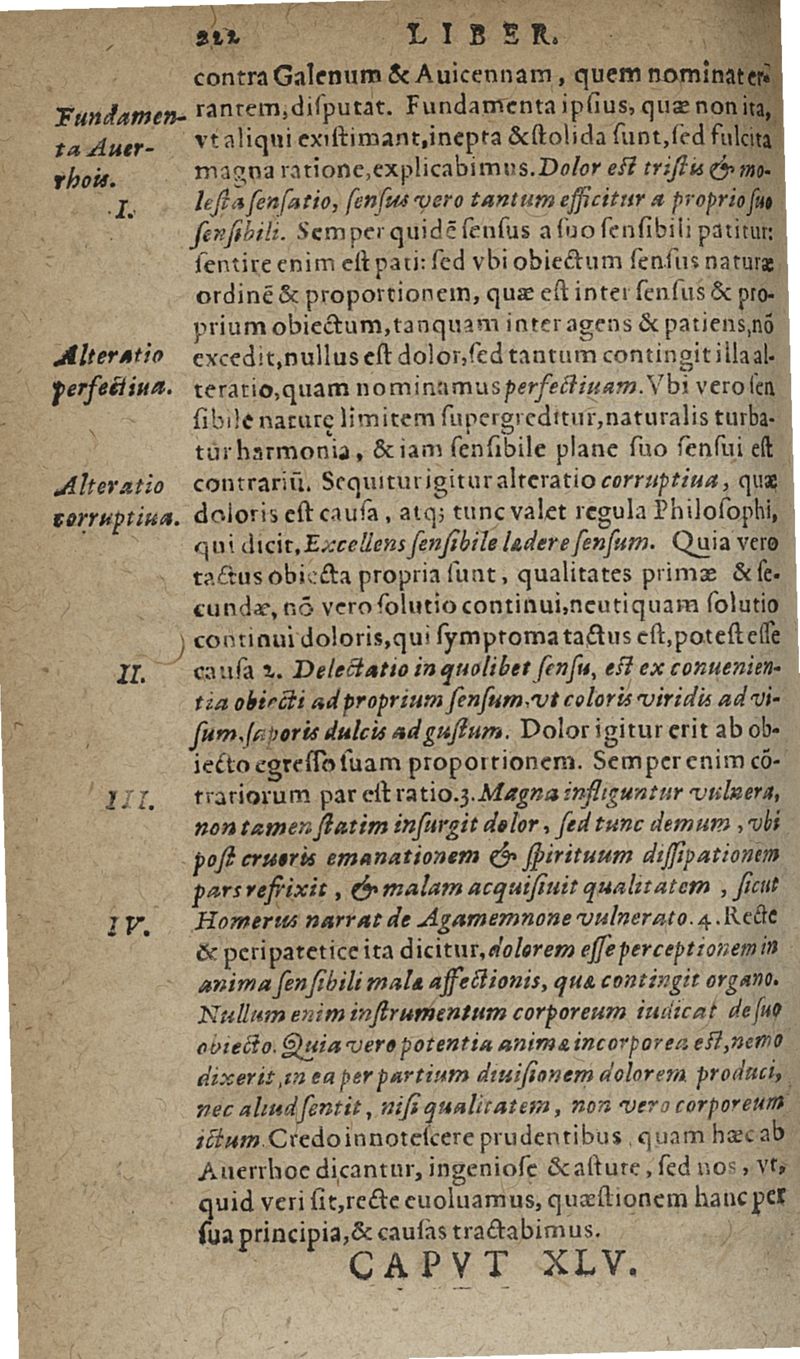 222 LIBER.
contra Galenum & Auicennam, quem nominat er-
Fundamen-
ta Auer-
rhois.
rantem, diſputat. Fundamenta ipſius, quæ non ita,
vt aliqui exiſtimant, inepta & ſtolida ſunt, ſed fulcita
magna ratione, explicabimus. Dolor eſt triſtis & mo-
I.
leſta ſenſatio, ſenſus vero tantum efficitur a proprio ſuo
ſenſibili. Semper quidē ſenſus a ſuo ſenſibili patitur:
ſentire enim eſt pati: ſed vbi obiectum ſenſus naturæ
ordinē & proportionem, quæ eſt inter ſenſus & pro-
prium obiectum, tanquam inter agens & patiens, nō
Alteratio
perfectiua.
excedit, nullus eſt dolor, ſed tantum contingit illa al-
teratio, quam nominamus perfectiuam. Vbi vero ſen
ſibile naturę limitem ſupergreditur, naturalis turba-
tur harmonia, & iam ſenſibile plane ſuo ſenſui eſt
Alteratio
corruptiua.
contrariū. Sequitur igitur alteratio corruptiua, quæ
doloris eſt cauſa, atq; tunc valet regula Philoſophi,
qui dicit, Excellens ſenſibile lædere ſenſum. Quia vero
tactus obiecta propria ſunt, qualitates primæ & ſe-
cundæ, nō vero ſolutio continui, neutiquam ſolutio
continui doloris, qui ſymptoma tactus eſt, poteſt eſſe
II.
cauſa 2. Delectatio in quolibet ſenſu, eſt ex conuenien-
tia obiecti ad proprium ſenſum, vt coloris viridis ad vi-
ſum, ſaporis dulcis ad guſtum. Dolor igitur erit ab ob-
iecto egreſſo ſuam proportionem. Semper enim cō-
III.
trariorum par eſt ratio. 3. Magna infliguntur vulnera,
non tamen ſtatim inſurgit dolor, ſed tunc demum, vbi
poſt cruoris emanationem & ſpirituum diſſipationem
pars refrixit, & malam acquiſiuit qualitatem, ſicut
IV.
Homerus narrat de Agamemnone vulnerato. 4. Recte
& peripatetice ita dicitur, dolorem eſſe perceptionem in
anima ſenſibili malæ affectionis, quæ contingit organo.
Nullum enim inſtrumentum corporeum iudicat de ſuo
obiecto. Quia vero potentia animæ incorporea eſt, nemo
dixerit, in ea per partium diuiſionem dolorem produci,
nec aliud ſentit, niſi qualitatem, non vero corporeum
ictum. Credo innoteſcere prudentibus, quam hæc ab
Auerrhoe dicantur, ingenioſe & aſtute, ſed nos, vt,
quid veri ſit, recte euoluamus, quæſtionem hanc per
ſua principia, & cauſas tractabimus.
CAPVT XLV.